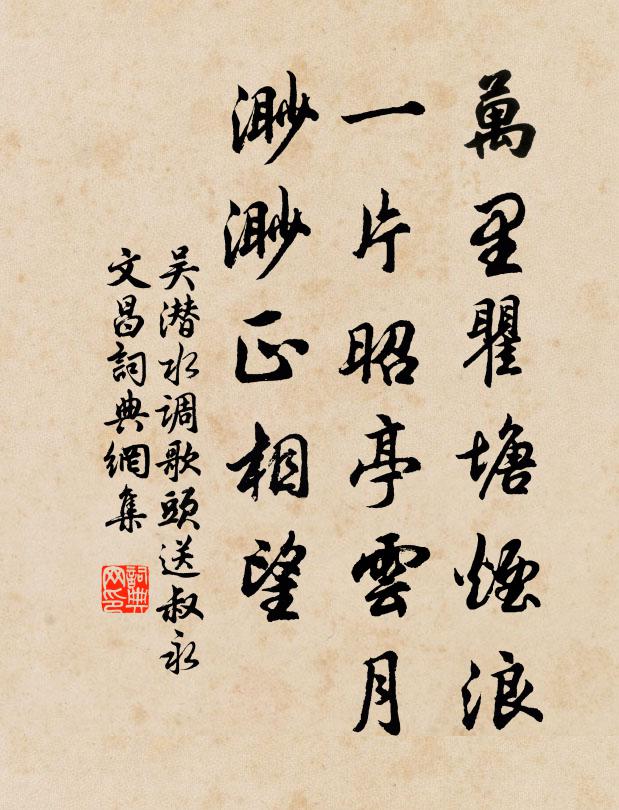 萬里瞿塘煙浪
一片昭亭雲月
渺渺正相望
吴潜水调歌頭送叔永
文昌詞典網集
詞典网印